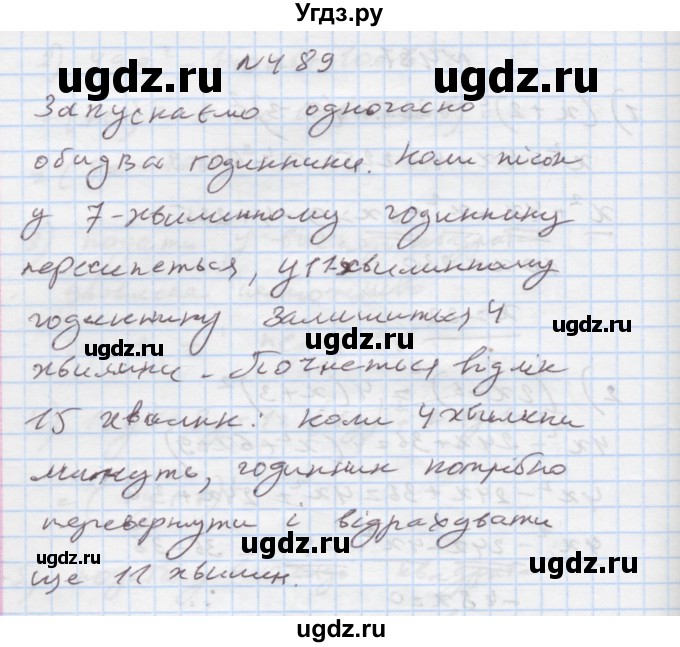 Угдз.ру
ugdz.ru №489 ugdz.ru
Запускаємо одночасно
обидва годинники. Коли пісок
у 7-хвилинному годиннику
пересипеться, у 11-хвилинному
годиннику залишиться 4
хвилини. Почнеться відлік
15 хвилин: коли 4 хвилини
минуть, годинник потрібно
перевернути і відрахувати
ще 11 хвилин.
ugdz.ru
ugdz.ru
ugdz.ru
ugdz.ru
ugdz.ru
ugdz.ru
ugdz.ru
ugdz.ru
ugdz.ru
ugdz.ru
ugdz.ru